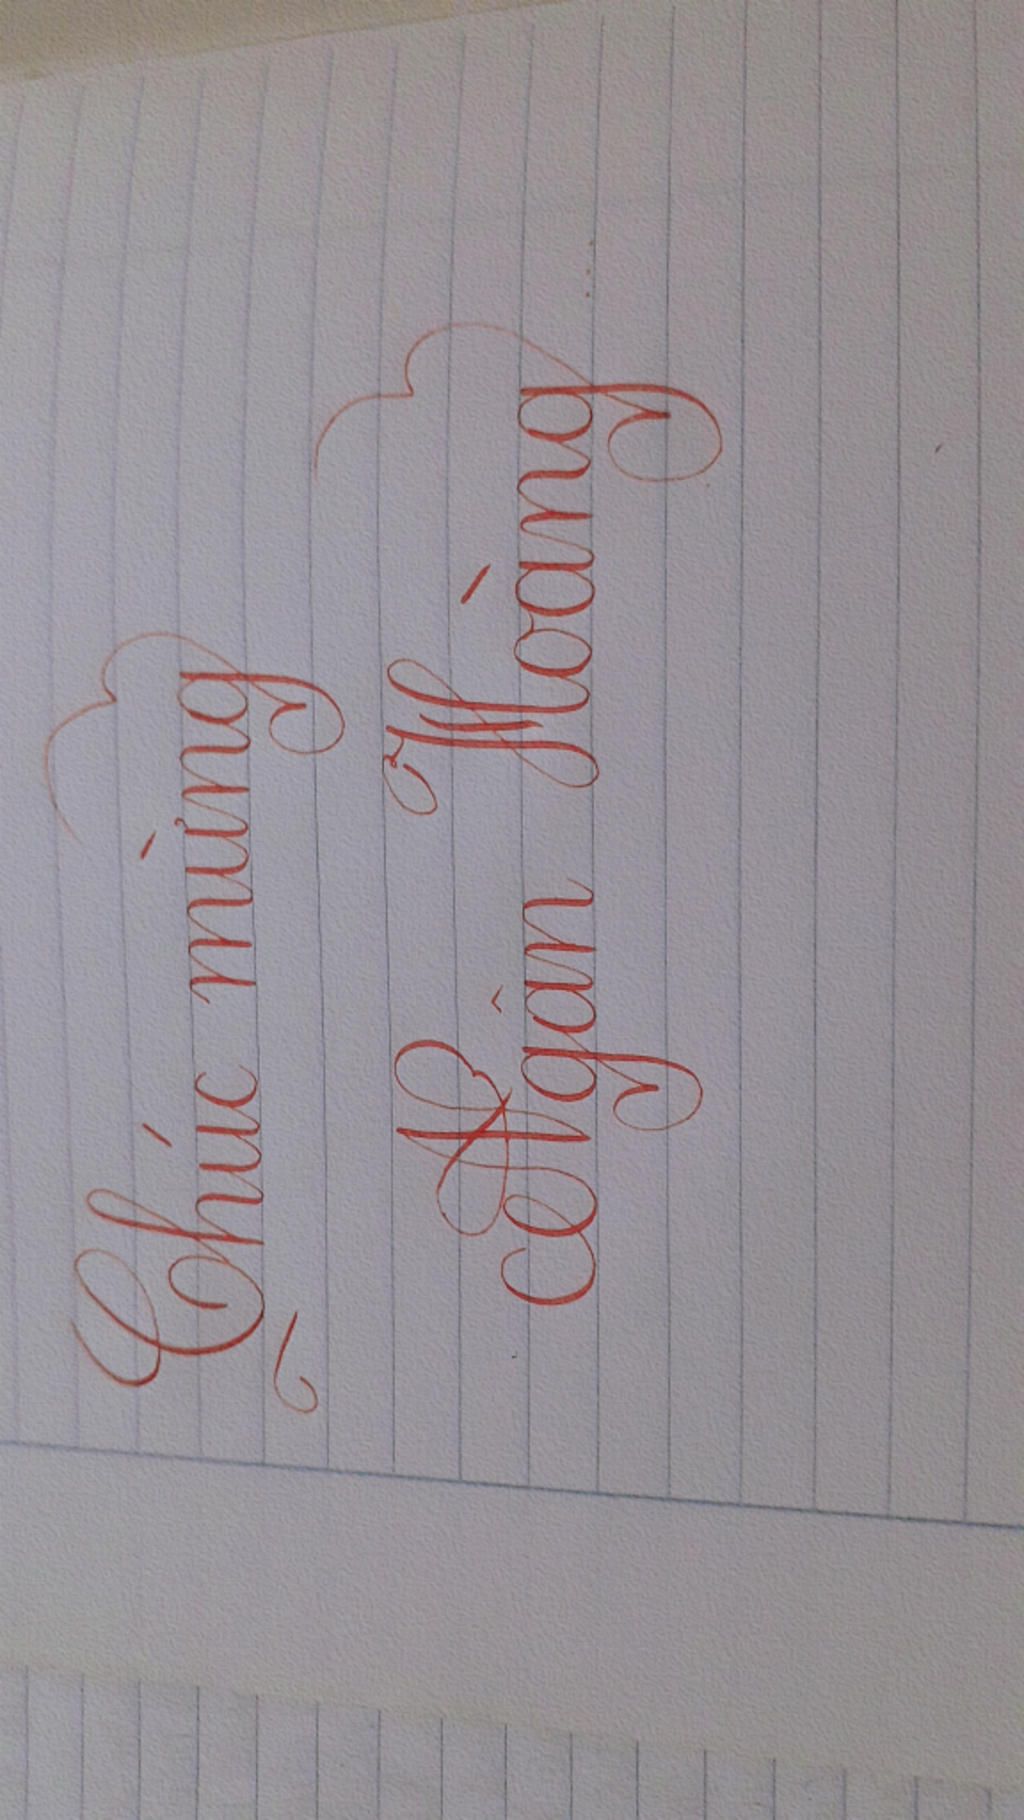 Chúc mừng
Ngân Hoàng